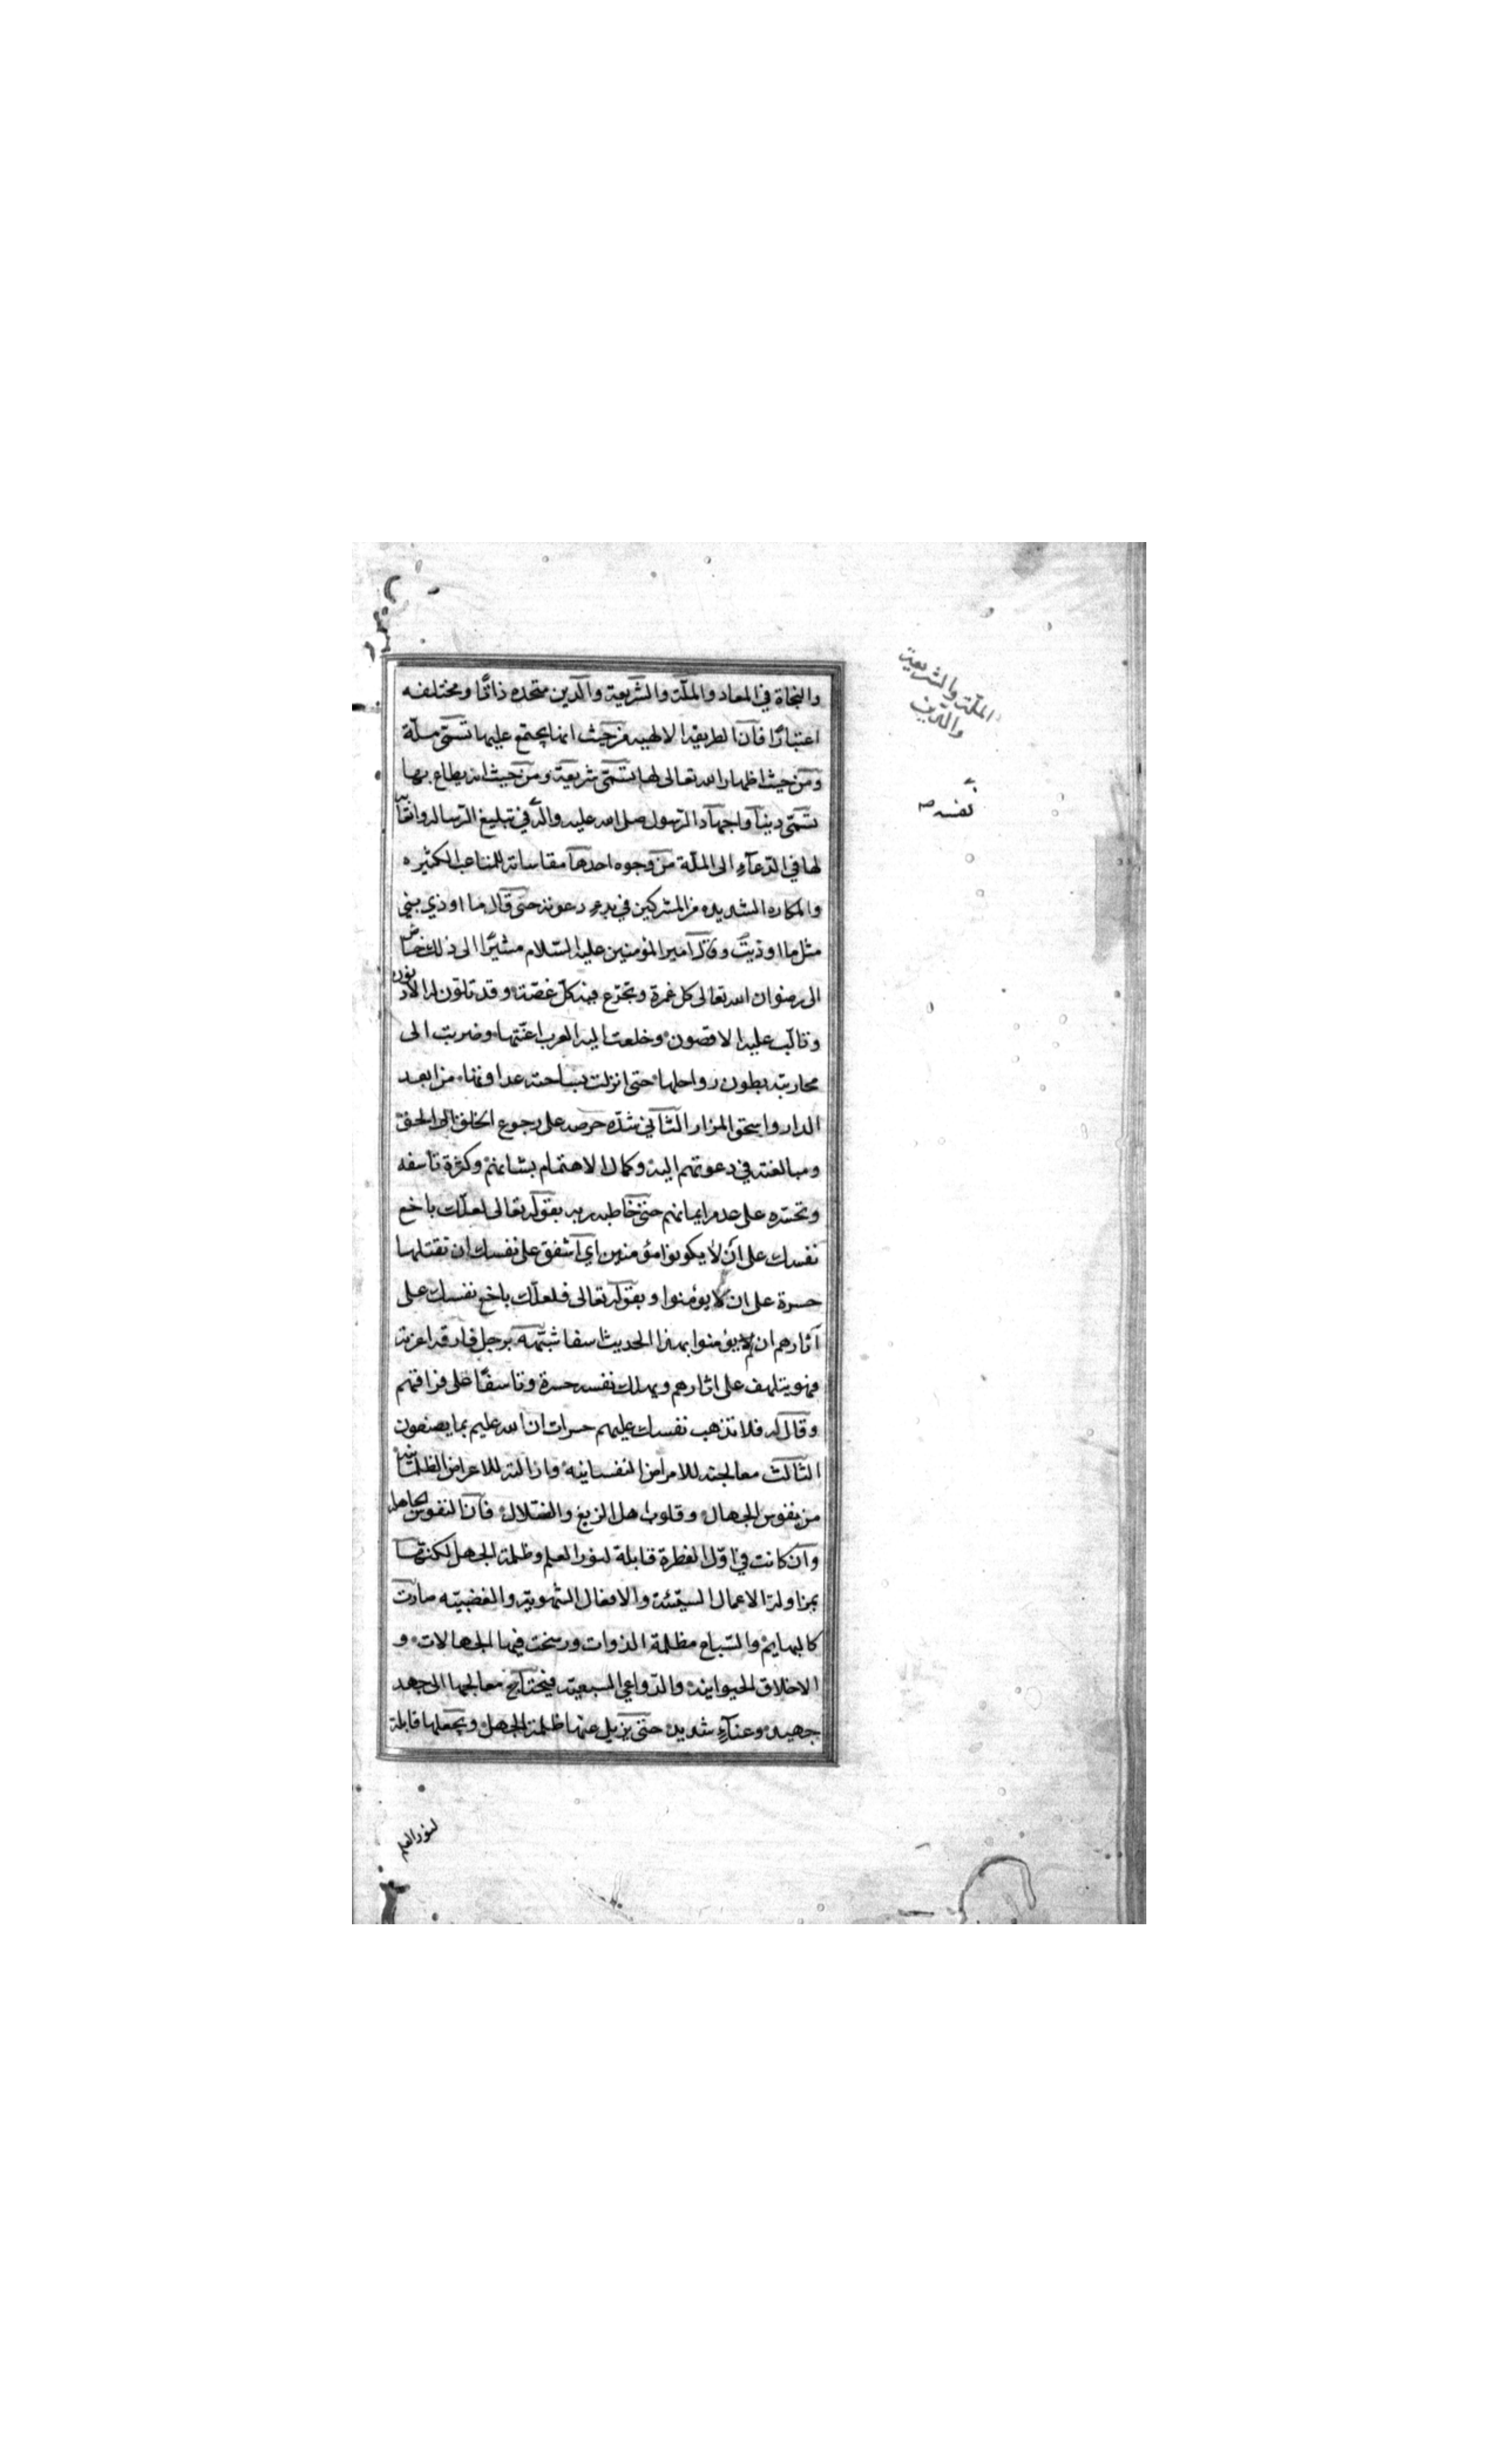 والنجاة في المعاد والملّة والشّريعة والدين متحده ذاتًا ومختلفه
اعتبارًا فانّ الطريقة الالهيه من حيث انها يجتمع عليها تسمّى ملّة
ومن حيث اظهار الله تعالى لها تسمّى شريعة ومن حيث انه يطاع بها
تسمّى دينا واجهاد الرّسول صلى الله عليه وآله في تبليغ الرّسالة واتعابه
لها في الدّعآء الى الملّة من وجوه احدها مقاساته للمتاعب الكثيره
والمكاره الشديده من المشركين في بدء دعوته حتى قال ما اوذي نبي
مثل ما اوذيتُ وقال امير المؤمنين عليه السّلام مشيرًا الى ذلك خاض
الى رضوان الله تعالى كل غمرة وتجرّع فيه كلّ غصّة وقد تلوّن له الادنون
وتالّب عليه الاقصون وخلعت اليه العرب اعنّتها وضربت الى
محاربته بطون رواحلها حتى انزلت بساحته عداوتها من ابعد
الدار واسحق المزار الثّاني شدّه حرصه على رجوع الخلق الى الحق
ومبالغته في دعوتهم اليه وكمال الاهتمام بشانهم وكثرة تأسفه
وتحسّره على عدم ايمانهم حتى خاطبه ربه بقوله تعالى لعلّك باخع
نفسك على ان لا يكونوا مؤمنين اي اشفق على نفسك ان تقتلها
حسرة على ان لا يؤمنوا وبقوله تعالى فلعلّك باخع نفسك على
آثارهم ان لم يؤمنوا بهذا الحديث اسفا شبّهه برجل فارقه اعزته
فهو يتلهف على اثارهم ويهلك نفسه حسرة وتاسفًا على فراقهم
وقال له فلا تذهب نفسك عليهم حسرات ان الله عليم بما يصنعون
الثالث معالجته للامراض النفسانيه وازالته للاعراض الظلمانية
من نفوس الجهال وقلوب اهل الزيغ والضلال فانّ النفوس الجاهله
وان كانت في اول الفطرة قابلة لنور العلم وظلمة الجهل لكنها
بمزاولة الاعمال السيّئة والافعال الشهويّة والغضبيّه صارت
كالبهايم والسّباع مظلمة الذوات ورسخت فيها الجهالات و
الاخلاق الحيوانية والدّواعي السبعية فيحتاج معالجها الى جهد
جهيد وعنآء شديد حتى يزيل عنها ظلمة الجهل ويجعلها قابلة
لنور العلم
الملّة والشريعة
والدّين
نفسه صه